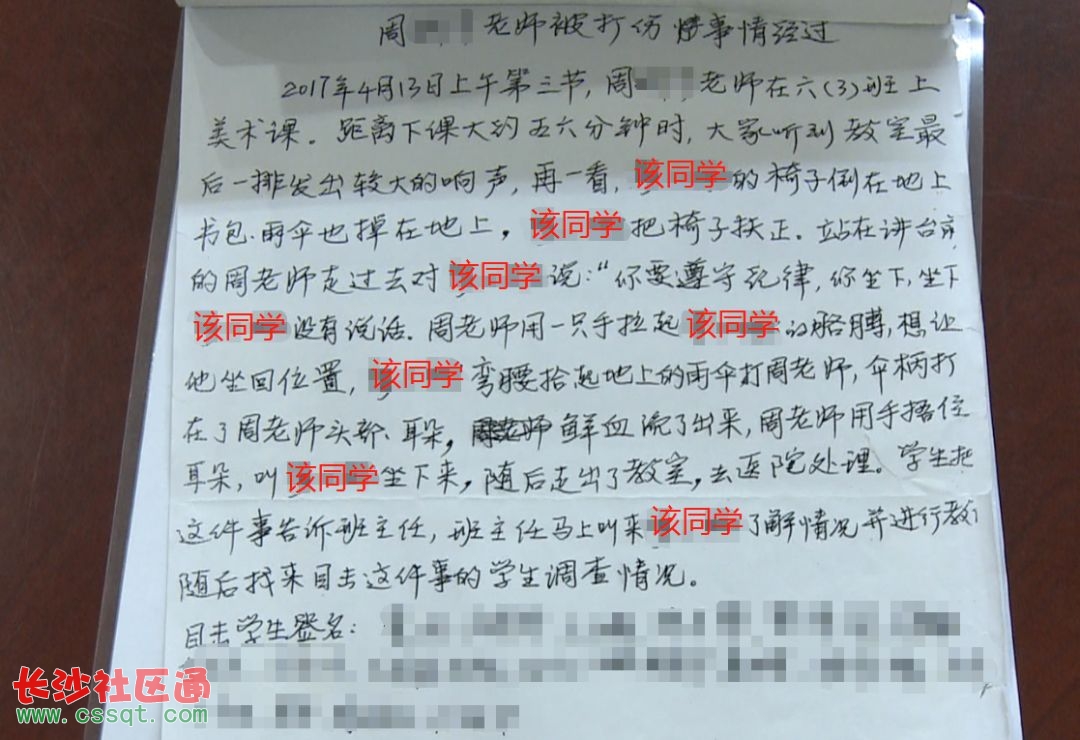 周老师被打伤事情经过
2017年4月13日上午第三节,周老师在六(3)班上
美术课。距离下课大约五六分钟时,大家听到教室最
后一排发出较大的响声,再一看,该同学的椅子倒在地上
书包.雨伞也掉在地上,该同学把椅子扶正.站在讲台前
的周老师走过去对该同学说:“你要遵守纪律,你坐下,坐下
该同学没有说话.周老师用一只手拉起该同学的胳膊,想让
他坐回位置,该同学弯腰拾起地上的雨伞打周老师,伞柄打
在了周老师头部、耳朵,周老师鲜血流了出来,周老师用手捂住
耳朵,叫该同学坐下来,随后走出了教室,去医院处理。学生把
这件事告诉班主任,班主任马上叫来该同学了解情况并进行教
随后找来目击这件事的学生调查情况。
目击学生签名:
长沙社区通
www.cssqt.com